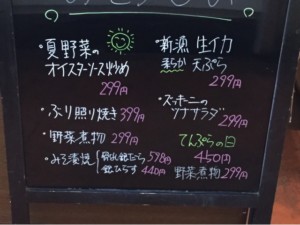 ・夏野菜の
オイスターソース炒め
299円
・ぶり照り焼き 399円
・野菜煮物 299円
・みそ漬焼 銀だら 598円
銀ひらす 440円
・新漁 生イカ
天ぷら
299円
・ズッキーニの
ツナサラダ
299円
てんぷらの日
450円
野菜煮物 299円